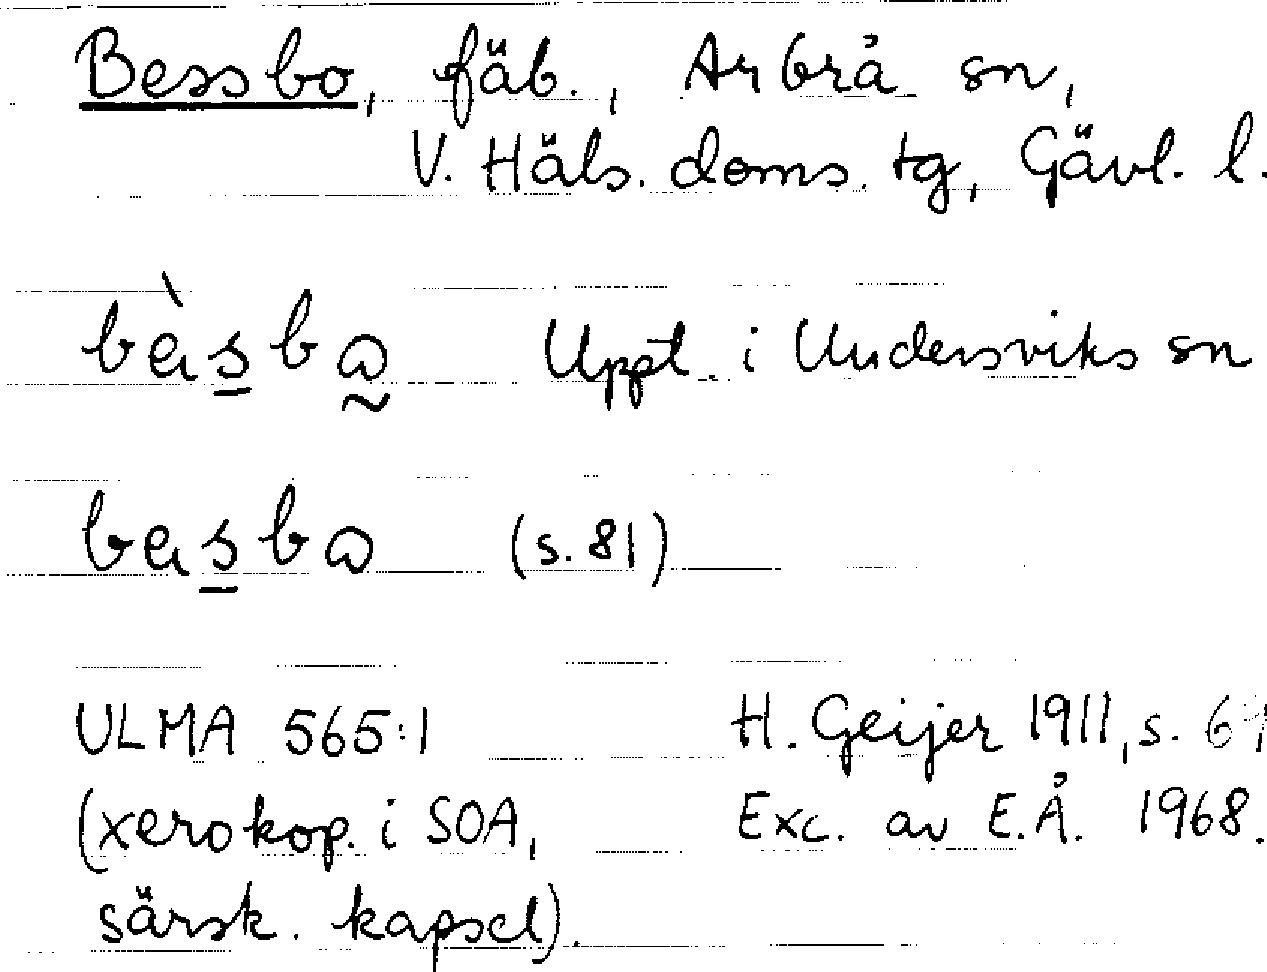 Bessbo, fäb., Arbrå sn,
V. Häls. doms. tg, Gävl. l.
bèsba Uppt. i Undersviks sn
besba (s. 81)
ULMA 565:1 H. Geijer 1911, s. 69
(xerokop. i SOA, Exc. av E.Å. 1968.
särsk. kapsel).